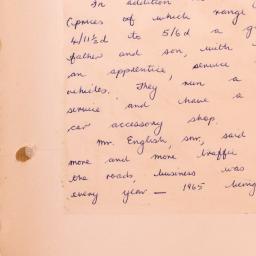 In addition
(prices of which range
4/11½d to 5/6d a g
father and son, with
an apprentice, service
vehicles. They run a
service and have a
car accessory shop.
Mr. English, snr, said
more and more traffic
the roads, business was
every year — 1965 being